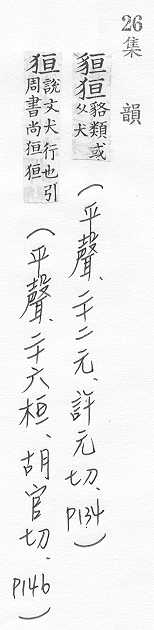 26集韻
貆狟貉類或从犬(平聲、二十二元、許元切、P134)
狟說文犬行也引周書尚狟狟(平聲、二十六桓、胡官切、P146)